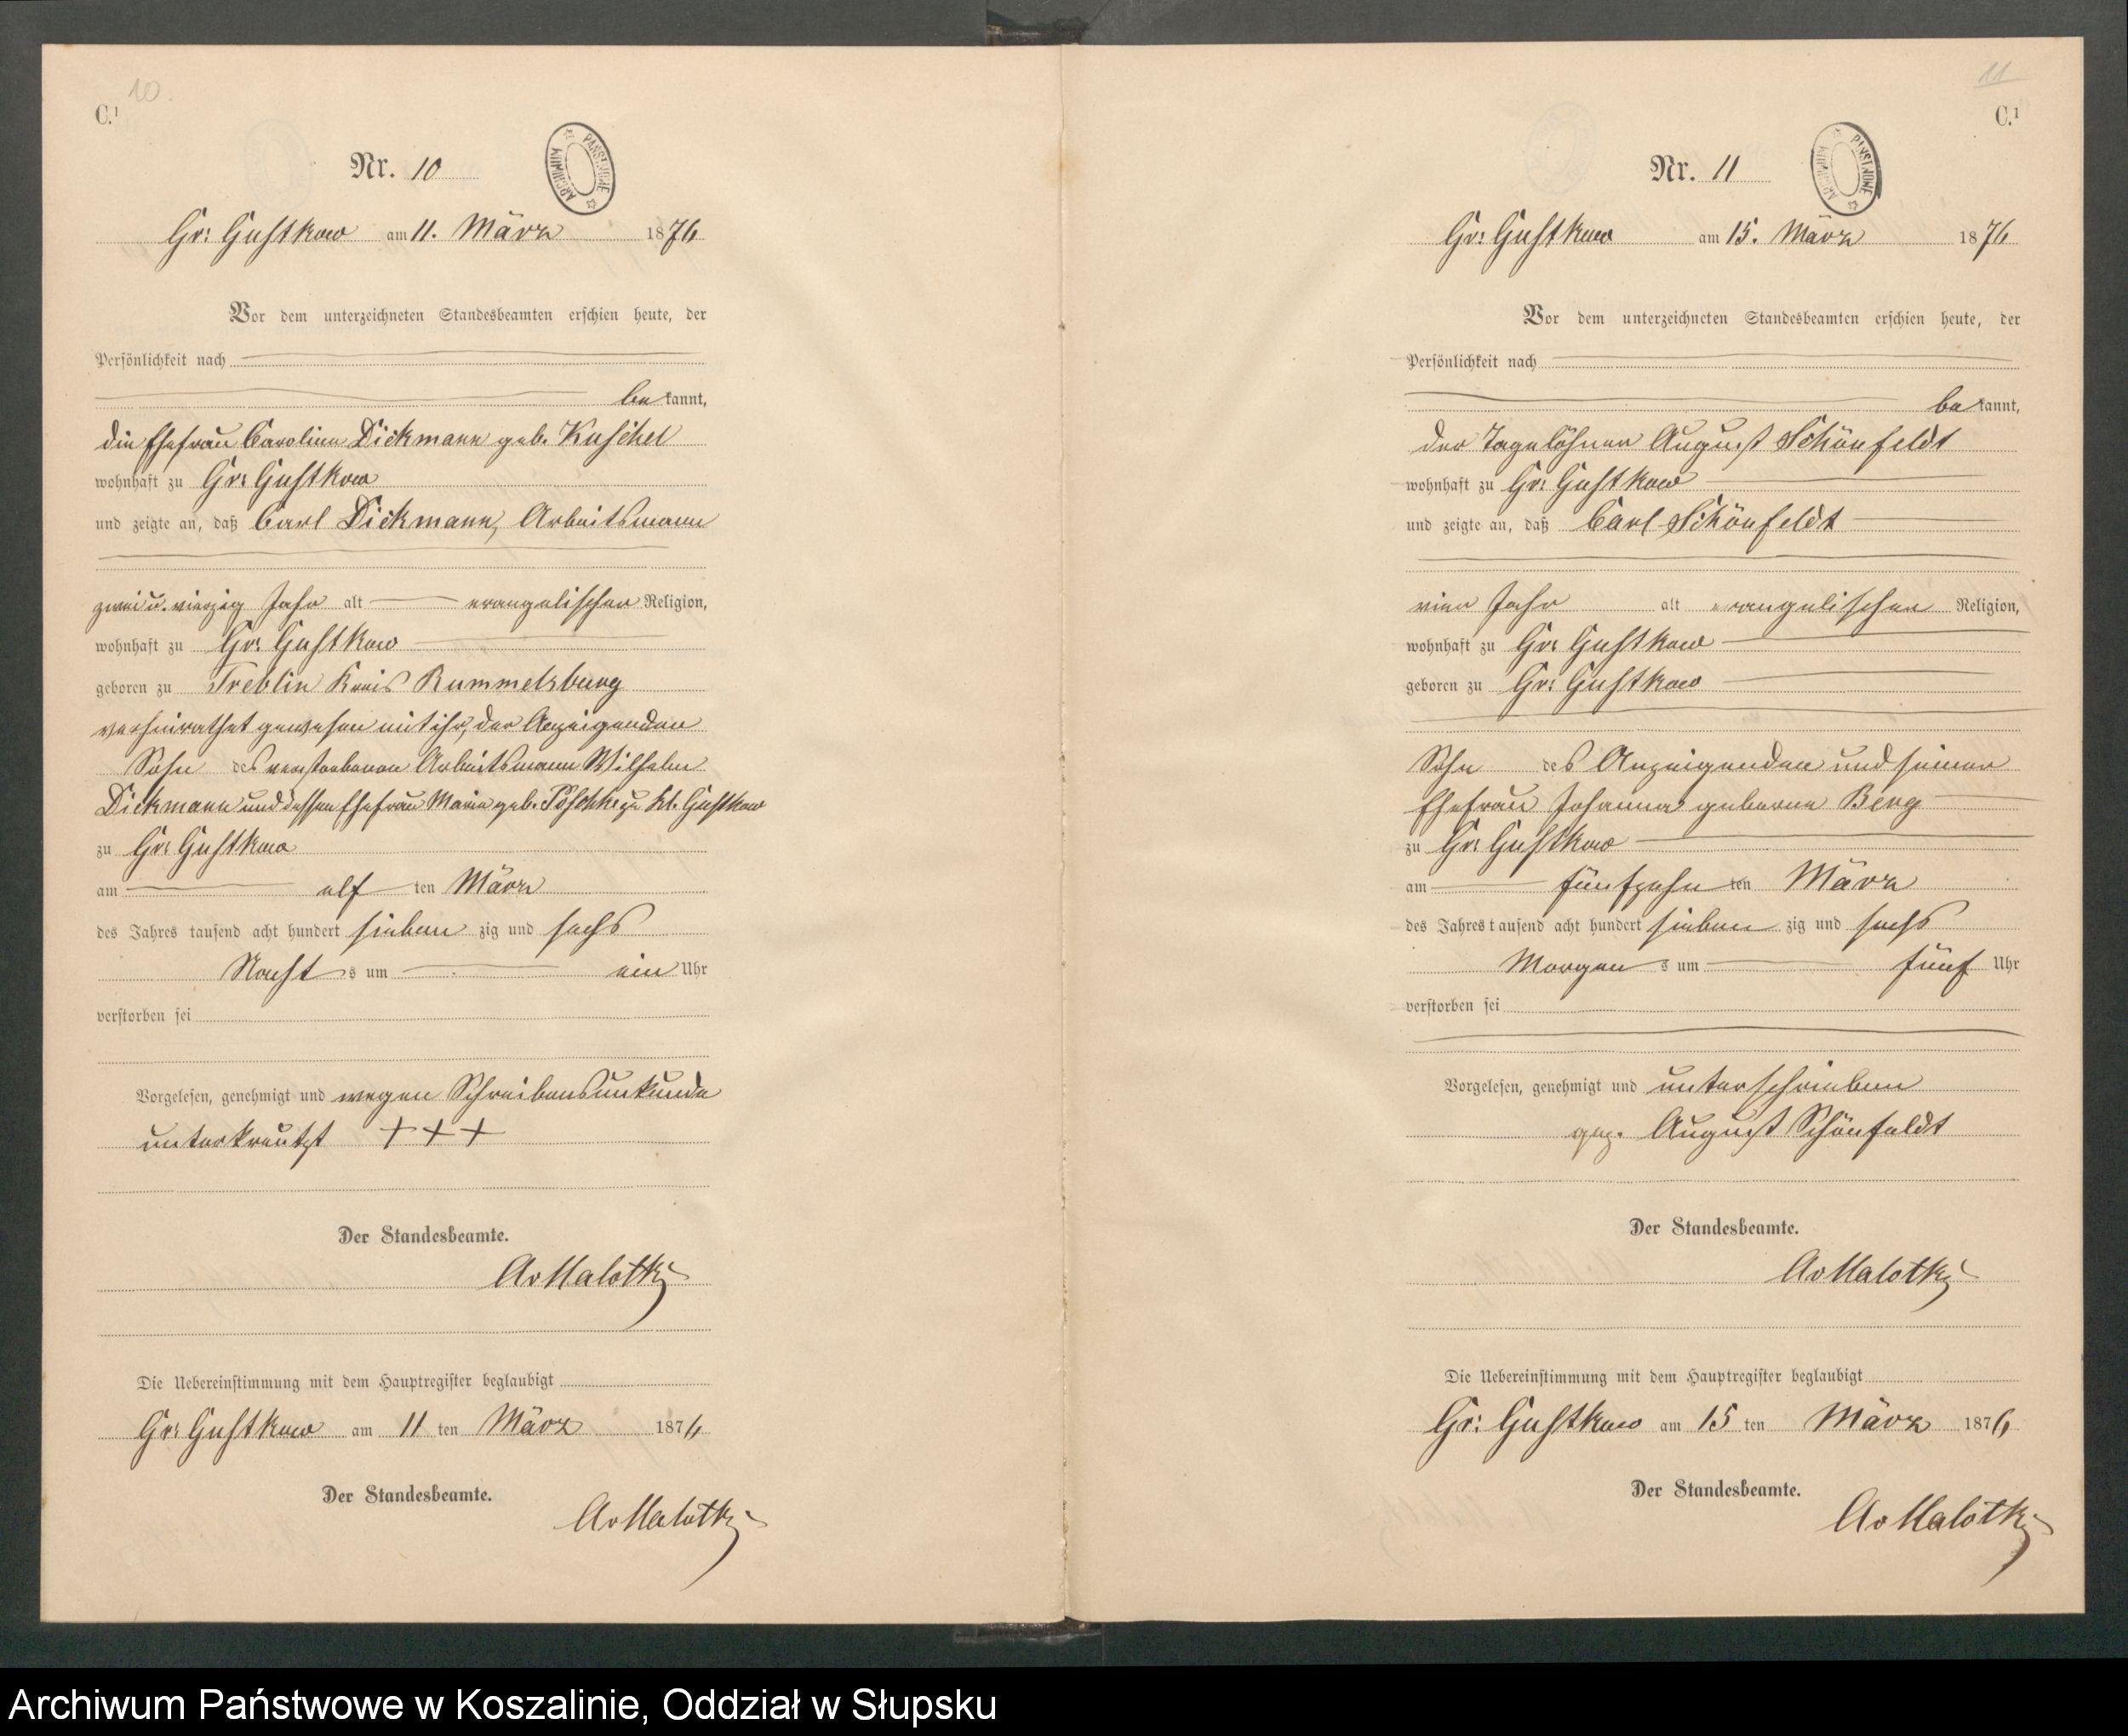 10.
C.¹
Nr. 10
ARCHIWUM PAŃSTWOWE
Gr: Gustkow am 11. März 1876
Vor dem unterzeichneten Standesbeamten erschien heute, der
Persönlichkeit nach
bekannt,
die Ehefrau Caroline Dickmann geb. Kuschel
wohnhaft zu Gr: Gustkow
und zeigte an, daß Carl Dickmann, Arbeitsmann
zwei u. vierzig Jahr alt evangelischer Religion,
wohnhaft zu Gr: Gustkow
geboren zu Treblin Kreis Rummelsburg
verheirathet gewesen mit ihr, der Anzeigenden
Sohn des verstorbenen Arbeitsmann Wilhelm
Dickmann und dessen Ehefrau Marie geb. Pöschke zu Kl. Gustkow
zu Gr: Gustkow
am elf ten März
des Jahres tausend acht hundert sieben zig und sechs
Nacht s um ein Uhr
verstorben sei
Vorgelesen, genehmigt und wegen Schreibensunkunde
unterkreutzt +++
Der Standesbeamte.
AvMalotky
Die Uebereinstimmung mit dem Hauptregister beglaubigt
Gr: Gustkow am 11 ten März 1876
Der Standesbeamte.
AvMalotky
11
C.¹
Nr. 11
ARCHIWUM PAŃSTWOWE
Gr: Gustkow am 15. März 1876
Vor dem unterzeichneten Standesbeamten erschien heute, der
Persönlichkeit nach
bekannt,
der Tagelöhner August Schönfeldt
wohnhaft zu Gr: Gustkow
und zeigte an, daß Carl Schönfeldt
vier Jahr alt evangelischer Religion,
wohnhaft zu Gr: Gustkow
geboren zu Gr: Gustkow
Sohn des Anzeigenden und seiner
Ehefrau Johanna geborne Berg
zu Gr: Gustkow
am fünfzehn ten März
des Jahres tausend acht hundert sieben zig und sechs
Morgen s um fünf Uhr
verstorben sei
Vorgelesen, genehmigt und unterschrieben
gez. August Schönfeldt
Der Standesbeamte.
AvMalotky
Die Uebereinstimmung mit dem Hauptregister beglaubigt
Gr: Gustkow am 15 ten März 1876
Der Standesbeamte.
AvMalotky
Archiwum Państwowe w Koszalinie, Oddział w Słupsku